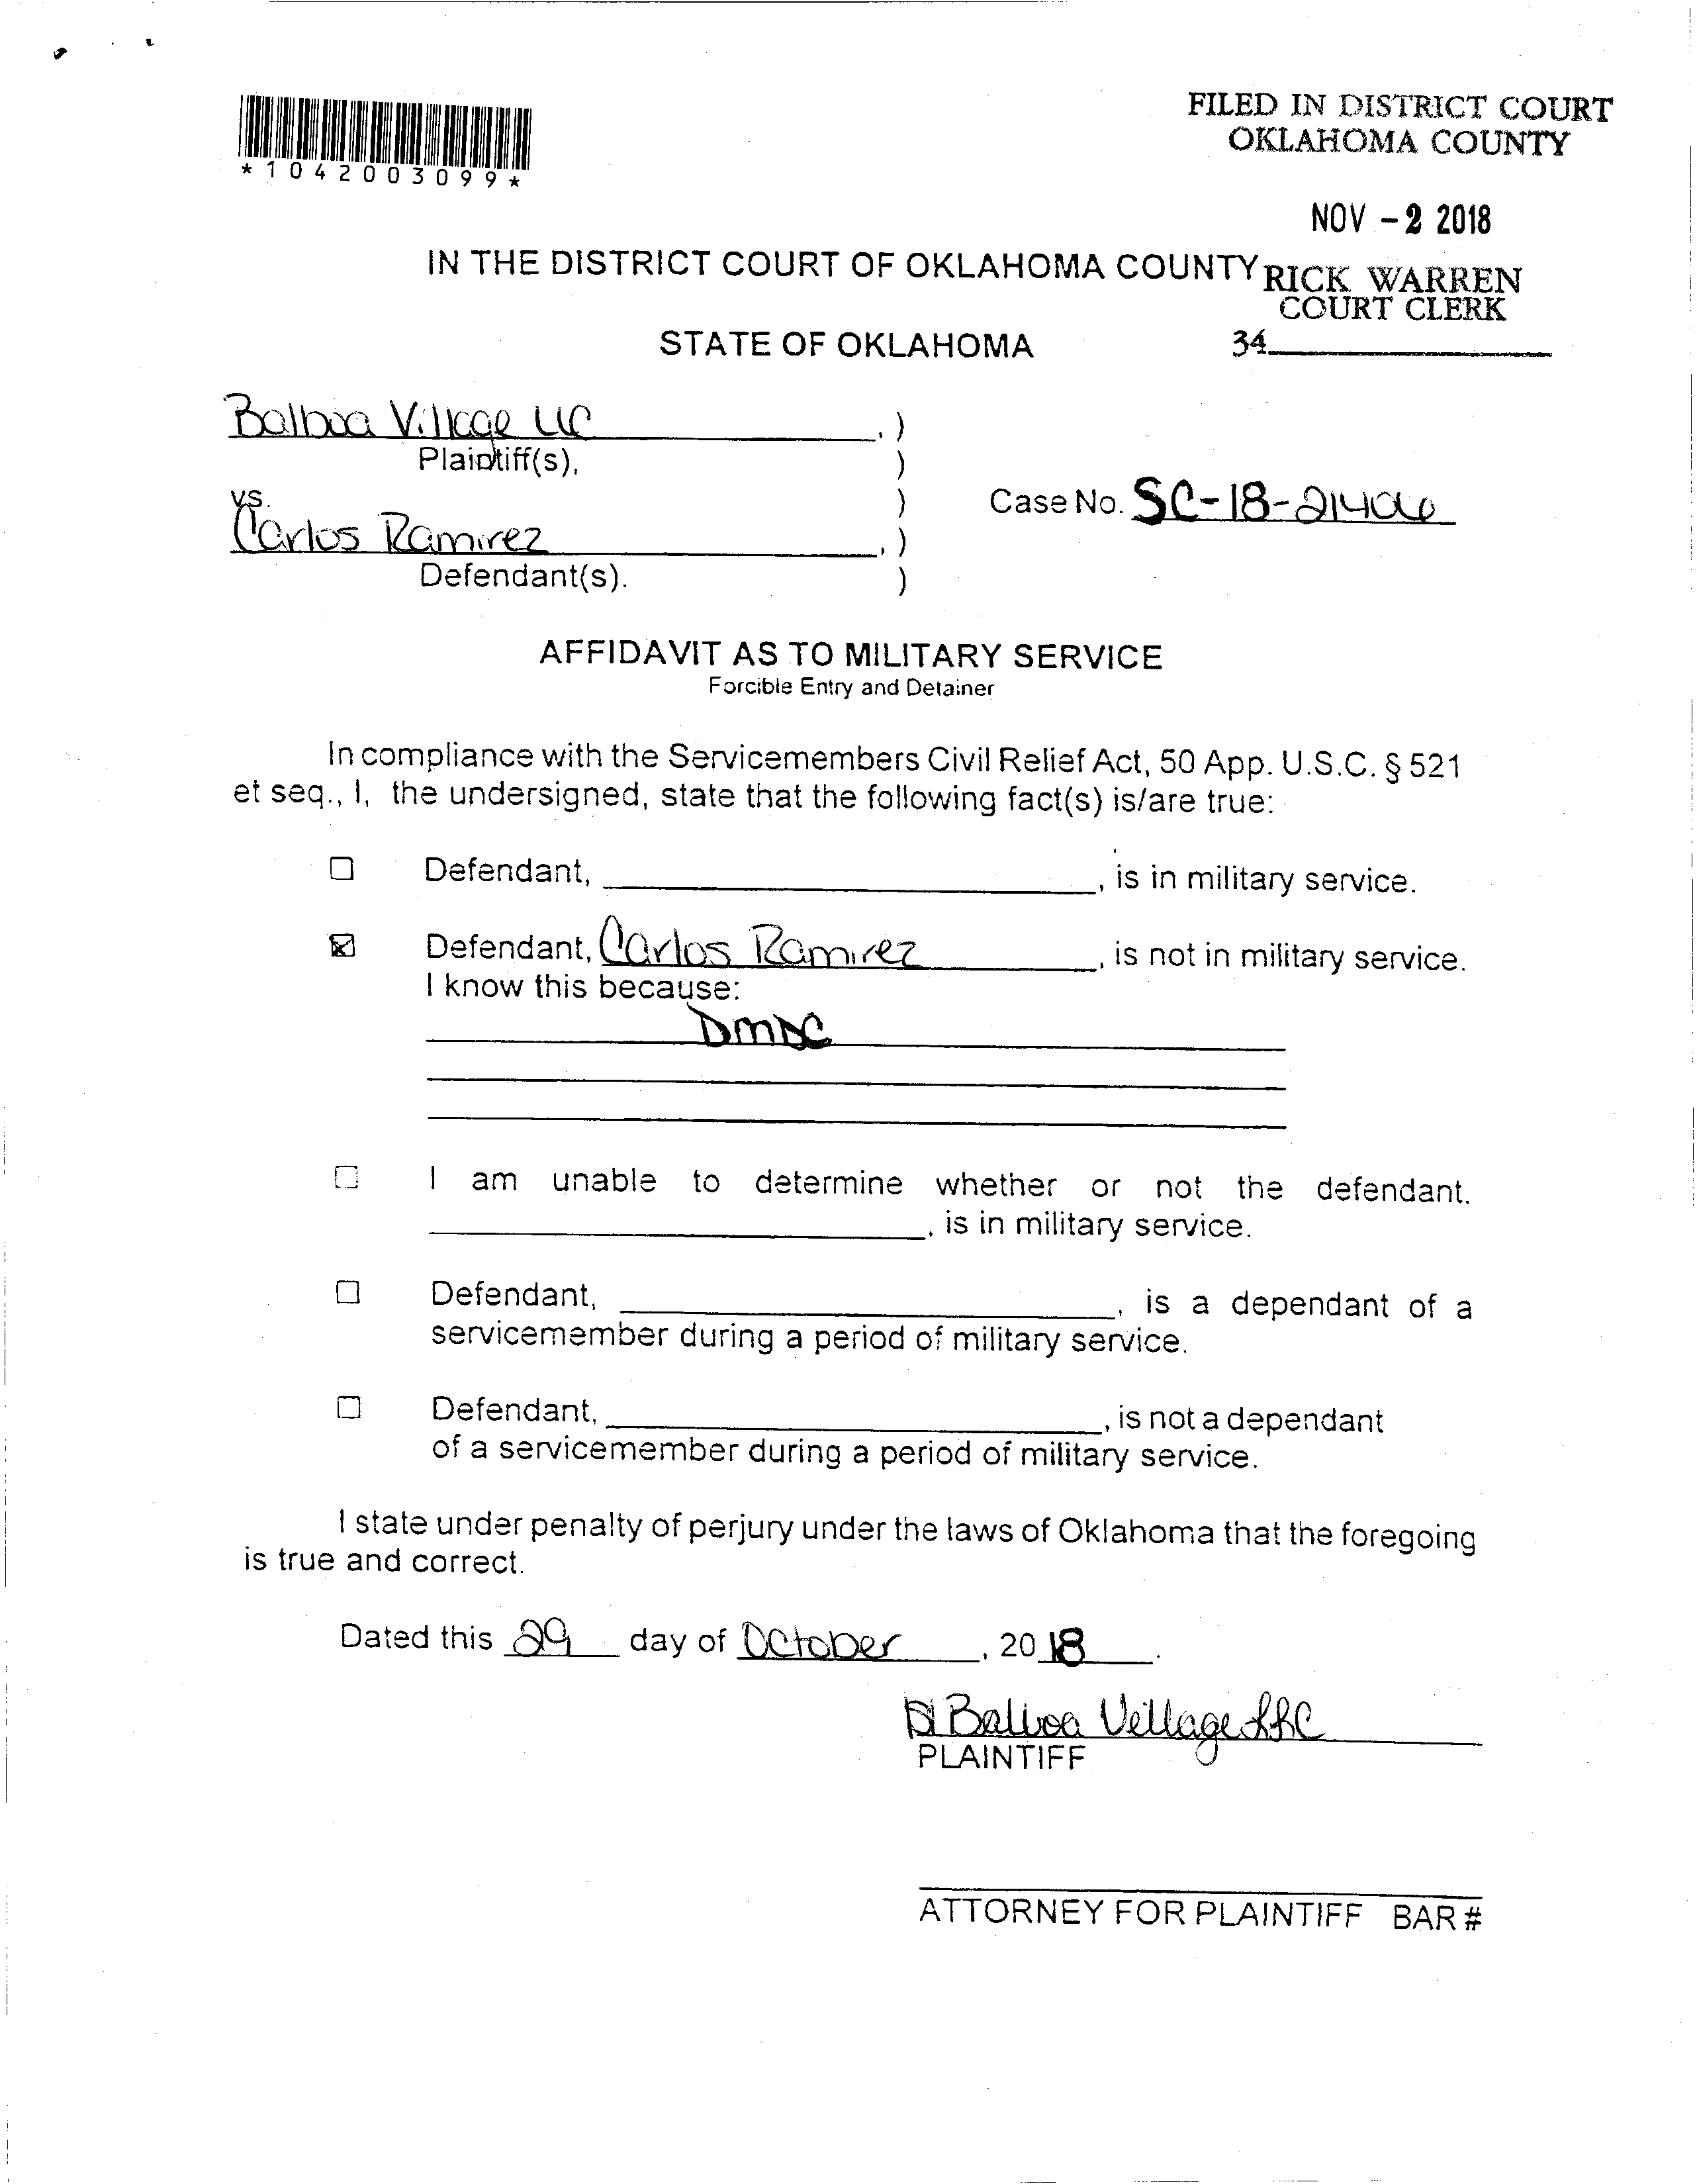 *1042003099*
FILED IN DISTRICT COURT
OKLAHOMA COUNTY
NOV - 2 2018
IN THE DISTRICT COURT OF OKLAHOMA COUNTY
RICK WARREN
COURT CLERK
STATE OF OKLAHOMA
34
Balboa Village LLC , )
Plaintiff(s), )
vs. ) Case No. SC-18-21406
Carlos Ramirez , )
Defendant(s). )
AFFIDAVIT AS TO MILITARY SERVICE
Forcible Entry and Detainer
In compliance with the Servicemembers Civil Relief Act, 50 App. U.S.C. § 521
et seq., I, the undersigned, state that the following fact(s) is/are true:
☐ Defendant, , is in military service.
☒ Defendant, Carlos Ramirez , is not in military service.
I know this because:
DMDC
☐ I am unable to determine whether or not the defendant,
, is in military service.
☐ Defendant, , is a dependant of a
servicemember during a period of military service.
☐ Defendant, , is not a dependant
of a servicemember during a period of military service.
I state under penalty of perjury under the laws of Oklahoma that the foregoing
is true and correct.
Dated this 29 day of October , 2018 .
Balboa Village LLC
PLAINTIFF
ATTORNEY FOR PLAINTIFF BAR #